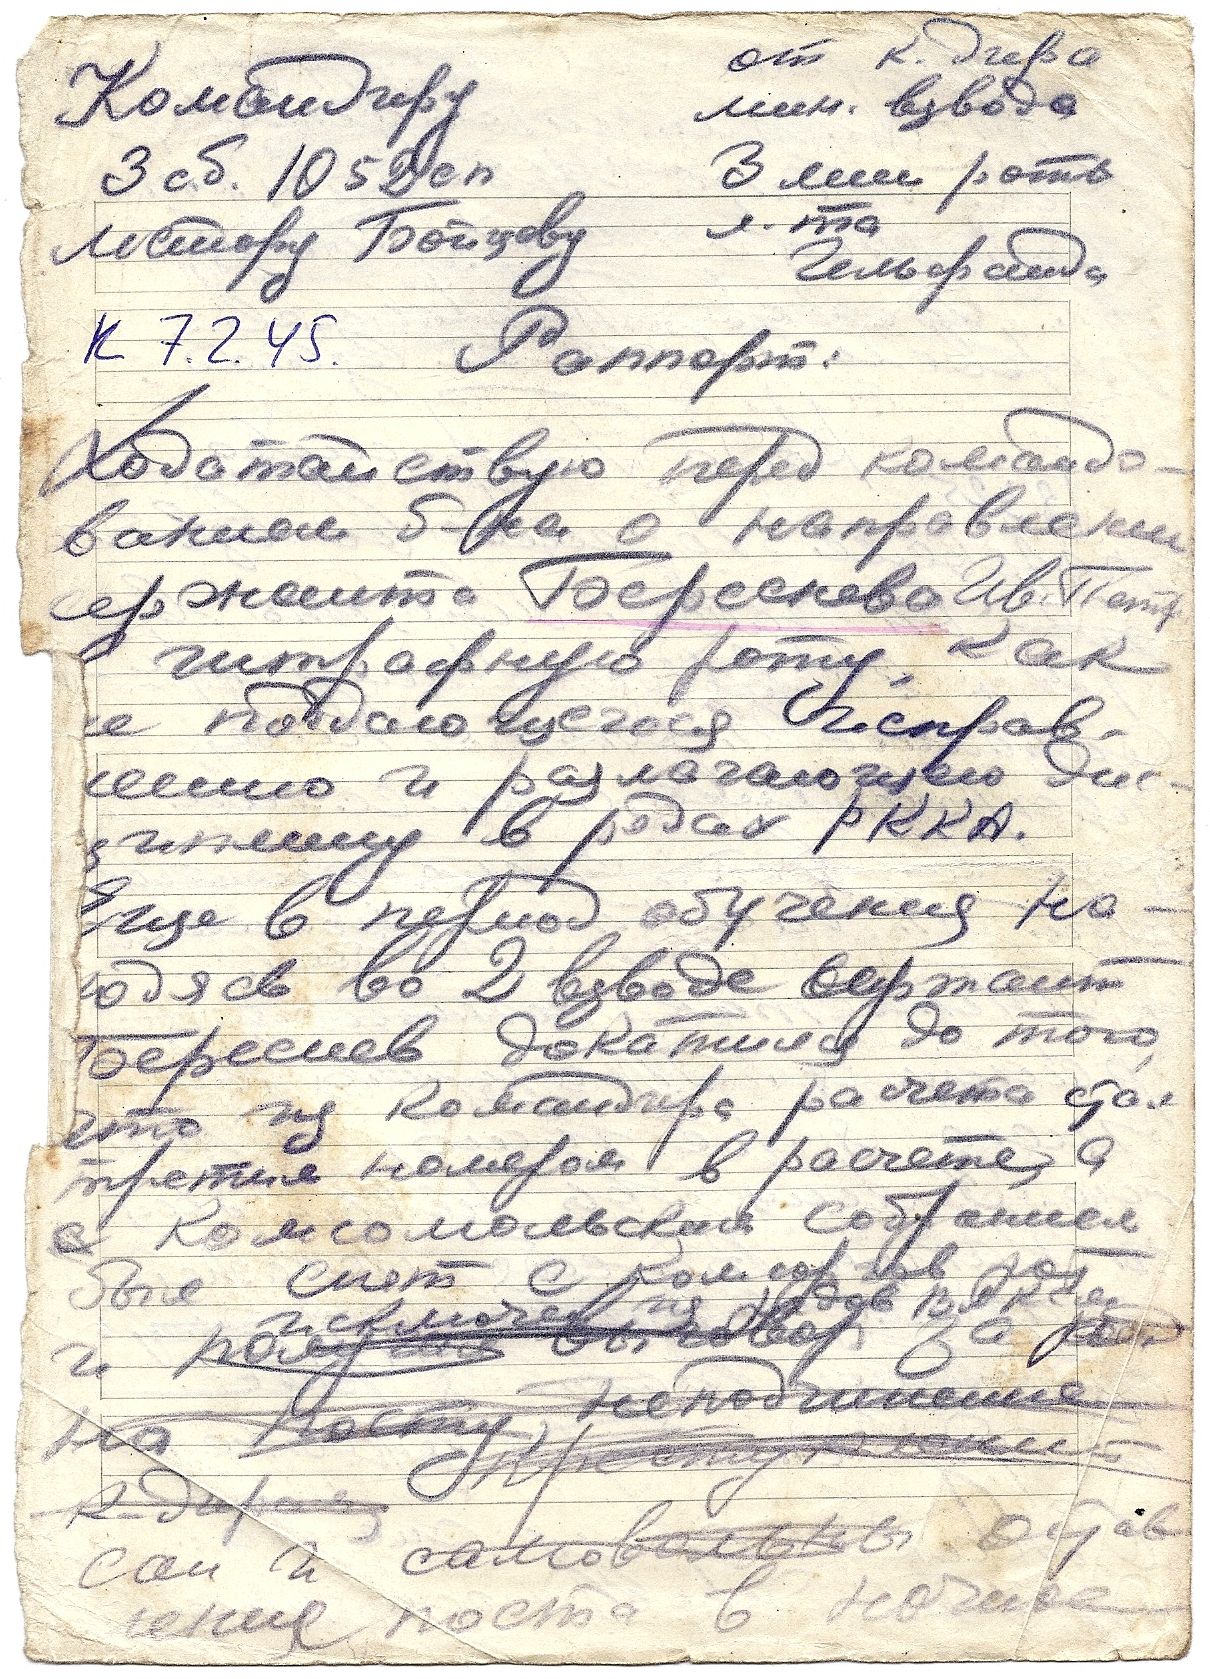 Командиру
3 сб. 1052 сп
майору Бойцову
от к. дира
мин. взвода
3 мин роты
л.-та
Гельфанда
К 7.2.45.
Раппорт:
Ходатайствую перед командо-
ванием б-на о направлени
сержанта Береснева Ив. Петр.
штрафную роту, как
е поддающегося исправ-
лению и разлагающего дис-
циплину в рядах РККА.
Еще в период обучения на-
ходясь во 2 взводе сержант
Береснев докатился до того,
что из командира расчета стал
третим номером в расчете, а
с Комсомольским собранием
был снят с комсоргов рот
исключен из рядов ВЛКСМ
и выговор за сон
на посту неподчинение
к-диров
сон и самовольные остав
ления поста в ночное